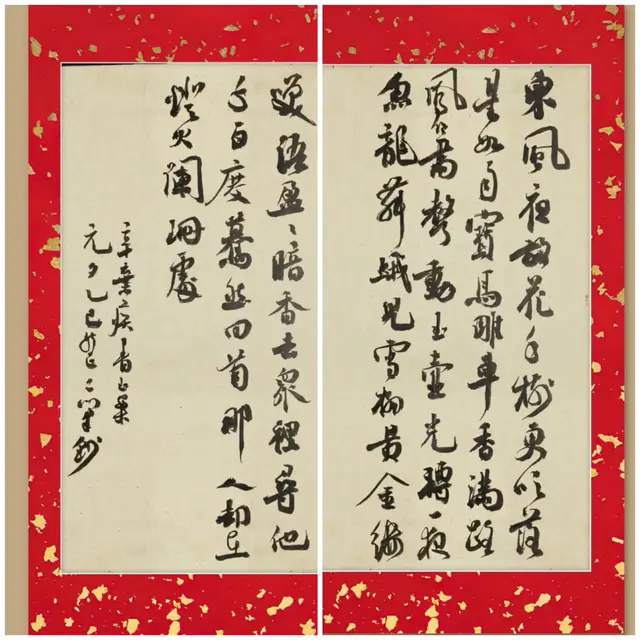 東風夜放花千樹更吹落
星如雨寶馬雕車香滿路
鳳簫聲動玉壺光轉一夜
魚龍舞蛾兒雪柳黃金縷
笑語盈〻暗香去衆裡尋他
千百度驀然回首那人却在
燈火闌珊處
辛棄疾青玉案
元夕乙巳